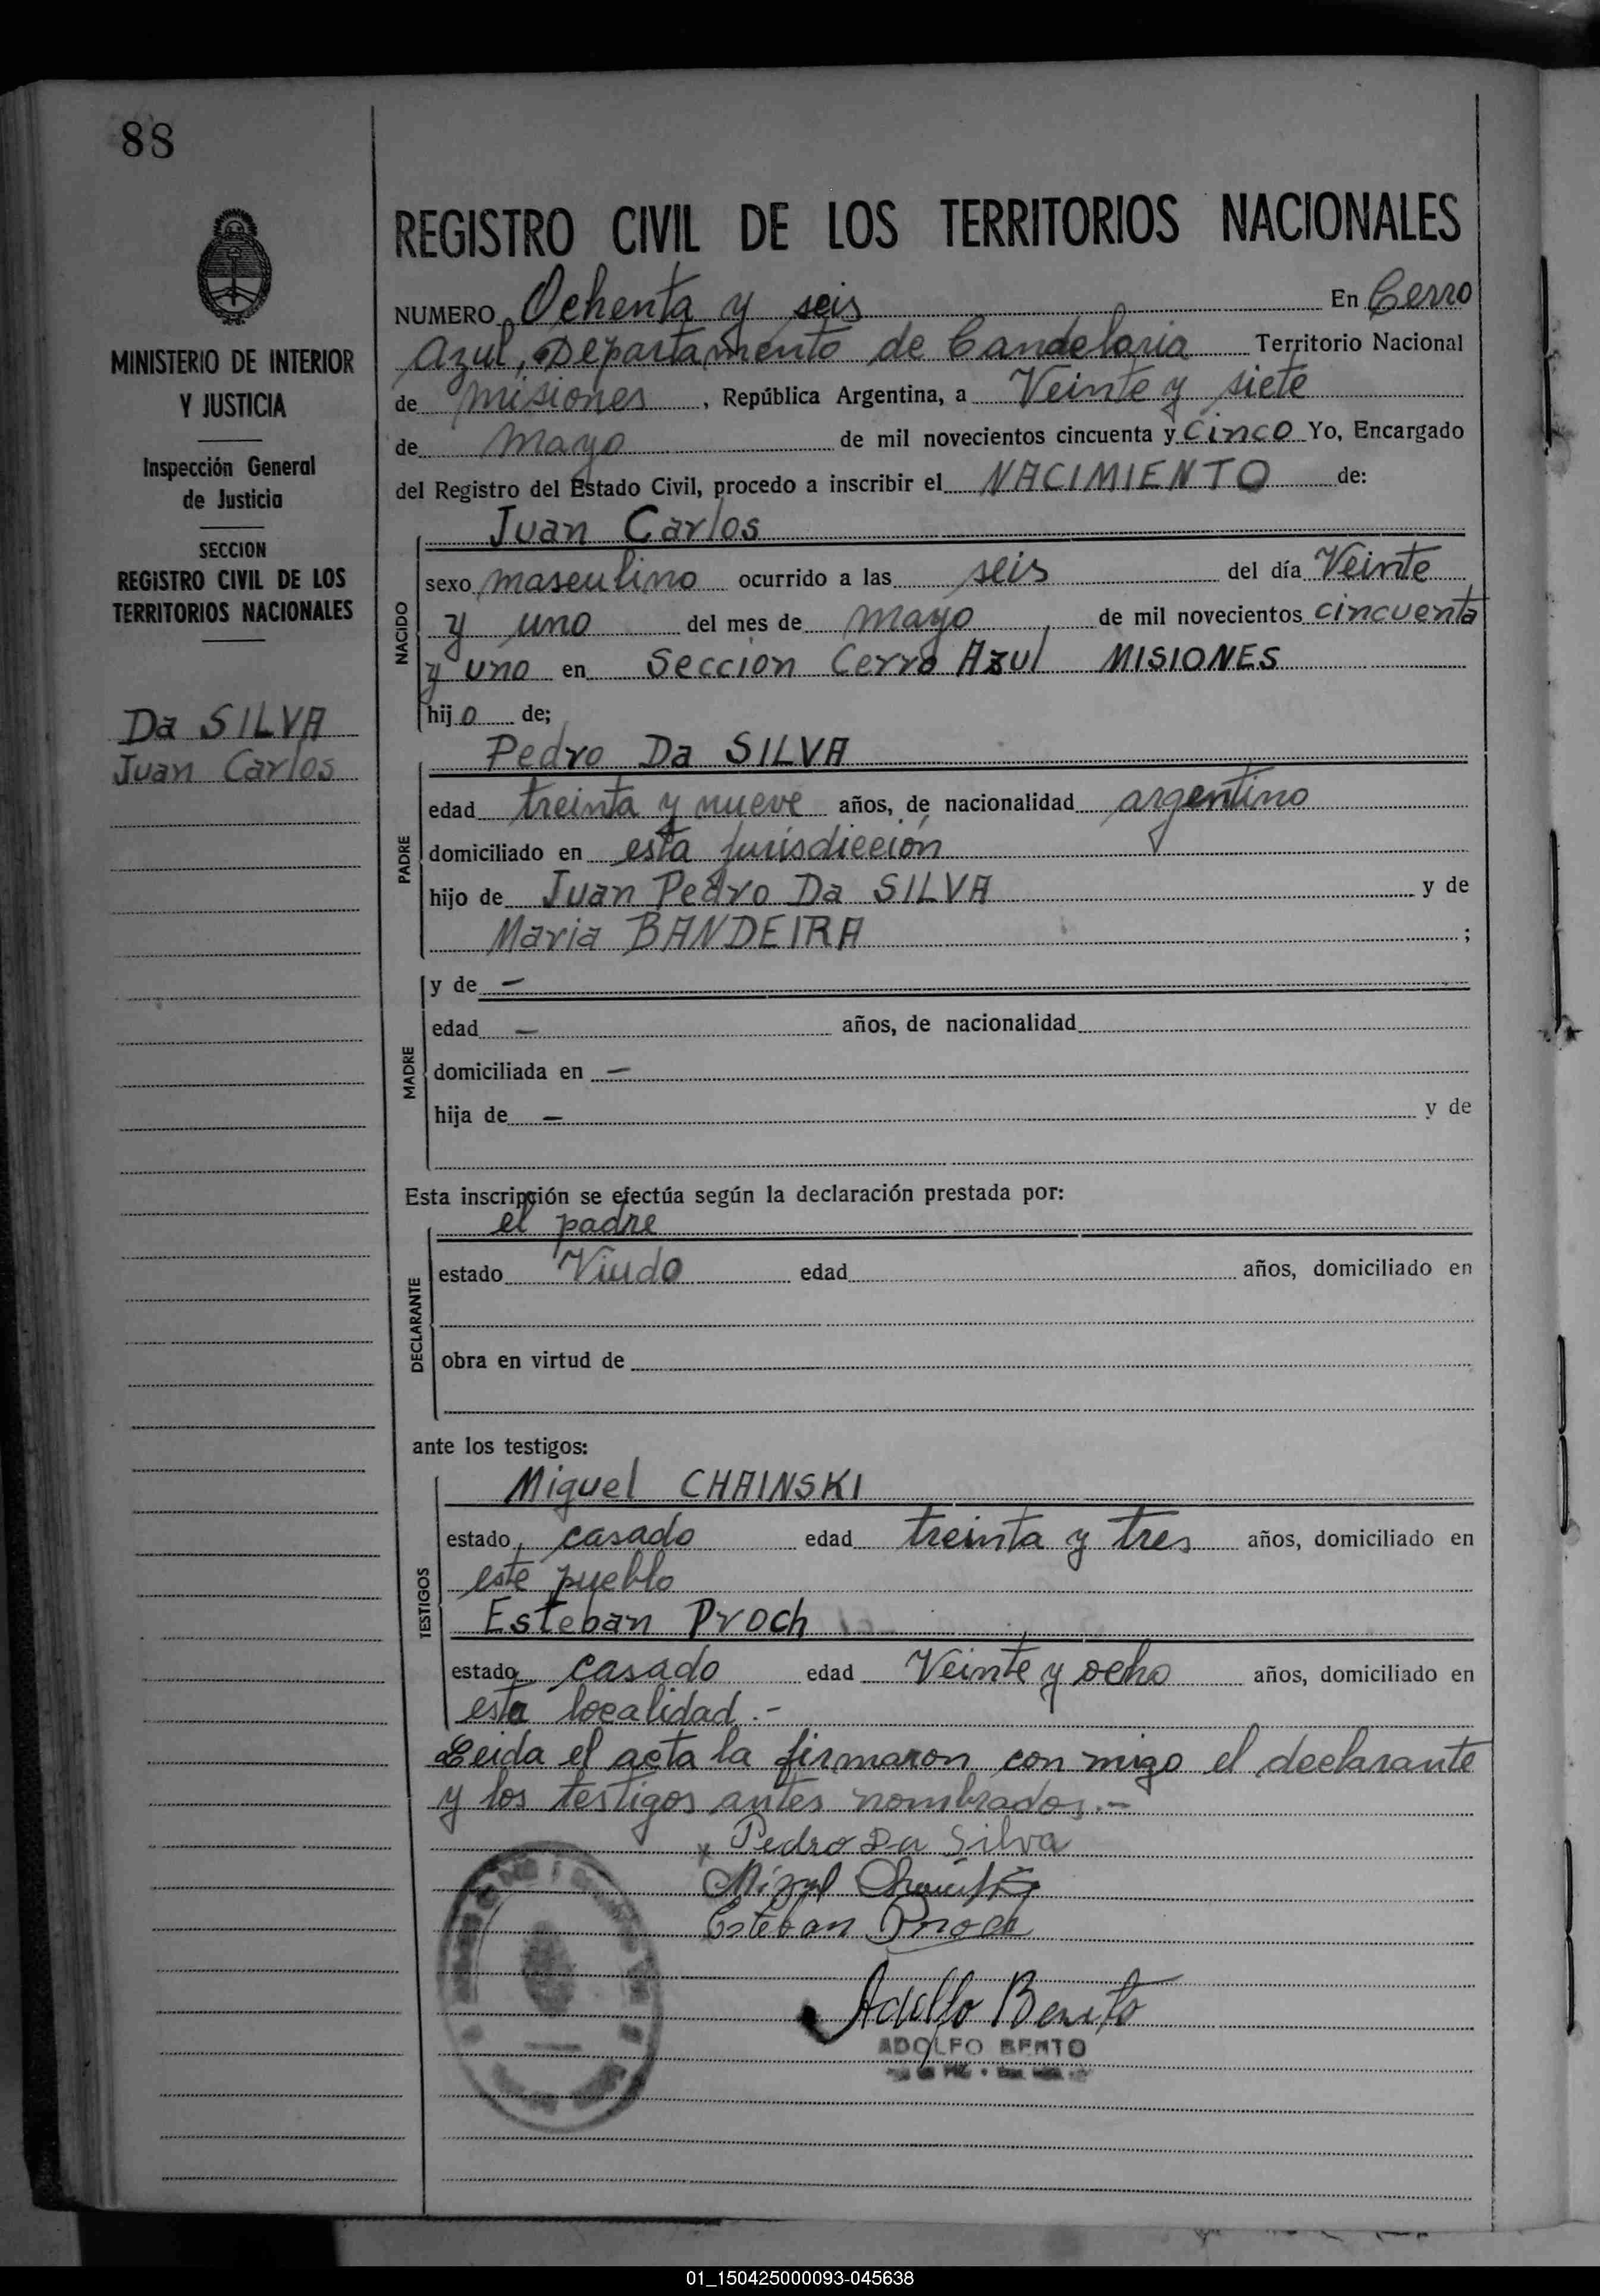 88
MINISTERIO DE INTERIOR
Y JUSTICIA
Inspección General
de Justicia
SECCION
REGISTRO CIVIL DE LOS
TERRITORIOS NACIONALES
Da SILVA
Juan Carlos
REGISTRO CIVIL DE LOS TERRITORIOS NACIONALES
NUMERO Ochenta y seis En Cerro
Azul, Departamento de Candelaria Territorio Nacional
de misiones, República Argentina, a Veinte y siete
de mayo de mil novecientos cincuenta y cinco Yo, Encargado
del Registro del Estado Civil, procedo a inscribir el NACIMIENTO de:
Juan Carlos
NACIDO
sexo masculino ocurrido a las seis del día Veinte
y uno del mes de mayo de mil novecientos cincuenta
y uno en Seccion Cerro Azul MISIONES
hijo de;
Pedro Da SILVA
PADRE
edad treinta y nueve años, de nacionalidad argentino
domiciliado en esta jurisdicción
hijo de Juan Pedro Da SILVA y de
Maria BANDEIRA ;
MADRE
y de —
edad — años, de nacionalidad
domiciliada en —
hija de — y de
Esta inscripción se efectúa según la declaración prestada por:
el padre
DECLARANTE
estado Viudo edad años, domiciliado en
obra en virtud de
ante los testigos:
Miguel CHAINSKI
TESTIGOS
estado casado edad treinta y tres años, domiciliado en
este pueblo
Esteban Proch
estado casado edad Veinte y ocho años, domiciliado en
esta localidad.-
Leida el acta la firmaron con migo el declarante
y los testigos antes nombrados.-
x Pedro Da Silva
Esteban Proch
Adolfo Benito
ADOLFO
01_150425000093-045638